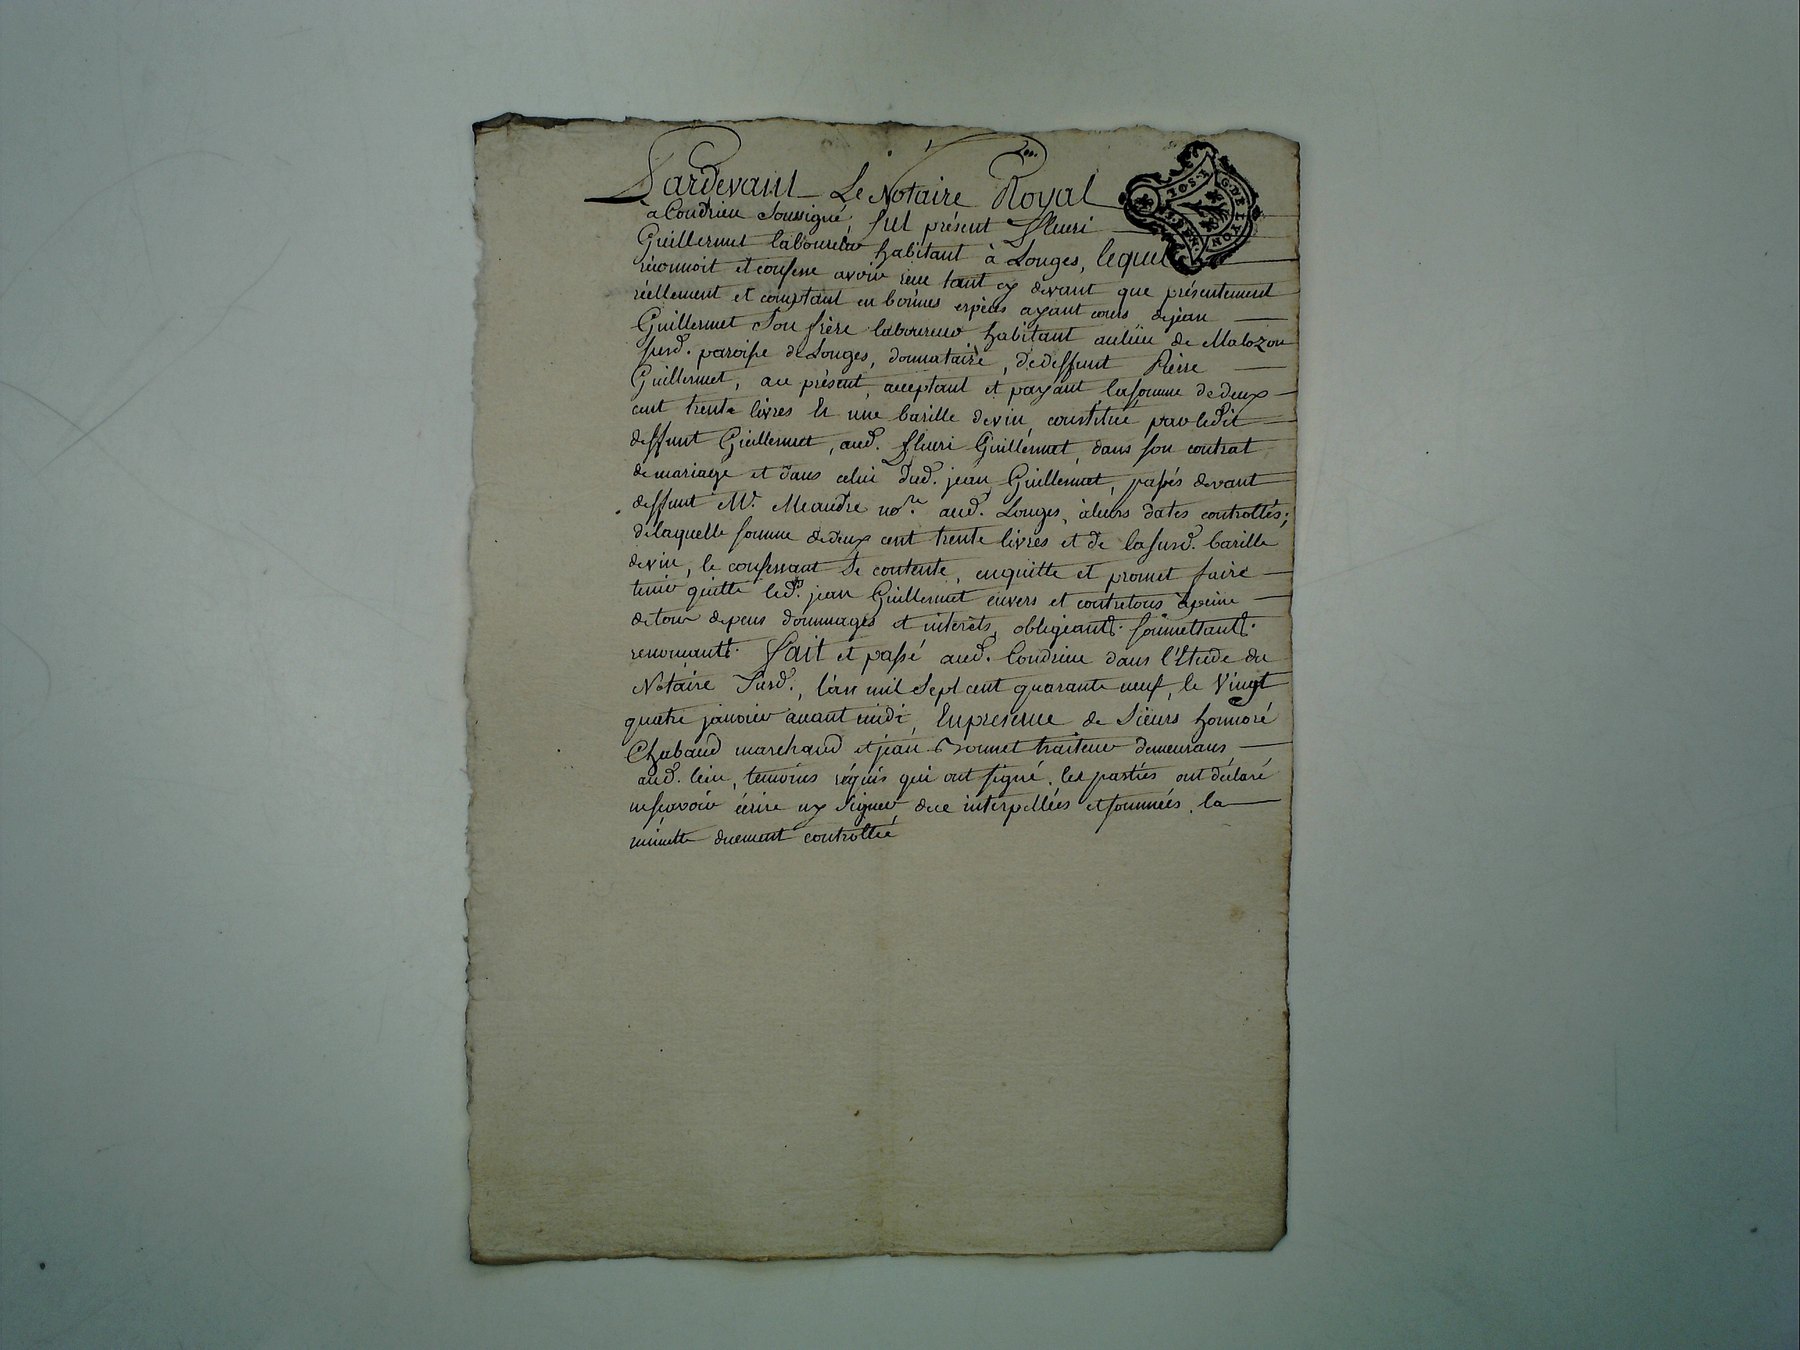 Pardevant Le Notaire Royal
à Condrieu soussigné, fut présent fleuri
Guillermet laboureur habitant à Longes, lequel
reconnoit et confesse avoir reçu tant cy devant que présentement
réellement et comptant en bonnes espèces ayant cours de jean
Guillermet son frère laboureur habitant au lieu de Malozon
susd. paroisse de Longes, donnataire, de deffunt Pierre
Guillermet, au présent, acceptant et payant la somme de deux
cent trente livres et une barille de vin, constitué par ledit
deffunt Guillermet, aud. fleuri Guillermet, dans son contrat
de mariage et dans celui dud. jean Guillermet, passés devant
deffunt Me. Meandre nore. aud. Longes, à leurs dates controllés;
de laquelle somme de deux cent trente livres et de la susd. barille
de vin, le confessant se contente, en quitte et promet faire
tenir quitte led. jean Guillermet envers et contre tous à peine
de tous depens dommages et interêts, obligeant. soumettant.
renonçant. fait et passé aud. Condrieu dans l'Etude du
Notaire susd., l'an mil sept cent quarante neuf, le vingt
quatre janvier avant midi, En presence de sieurs honnoré
Chabaud marchand et jean Bonnet traiteur demeurans
aud. lieu, temoins réquis qui ont signé, les parties ont déclaré
ne sçavoir écrire ny signer de ce interpellées et sommées. la
minutte duement controllée